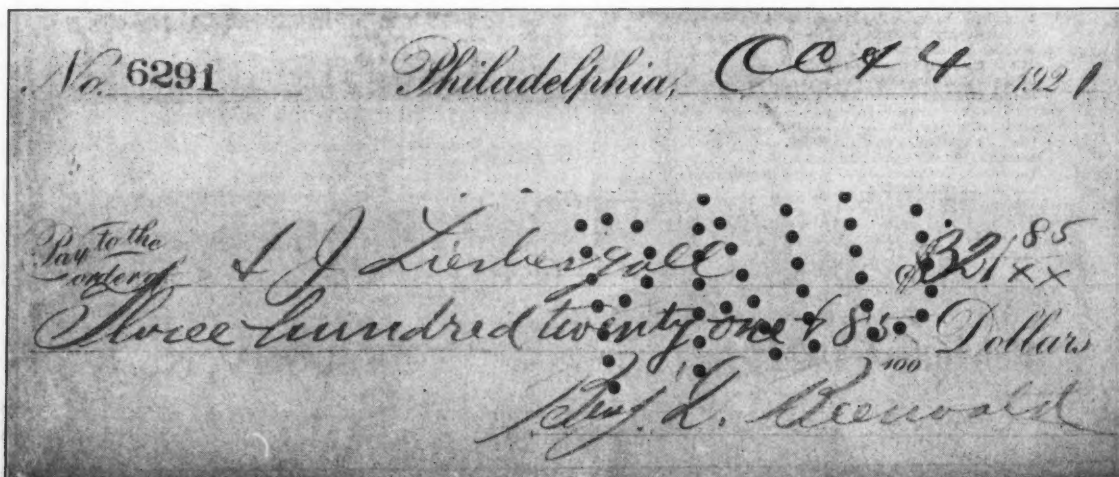 No. 6291 Philadelphia, Oct 4 1921
Pay to the order of J $321 85 xx
Three hundred twenty one & 85 100 Dollars
Benj.